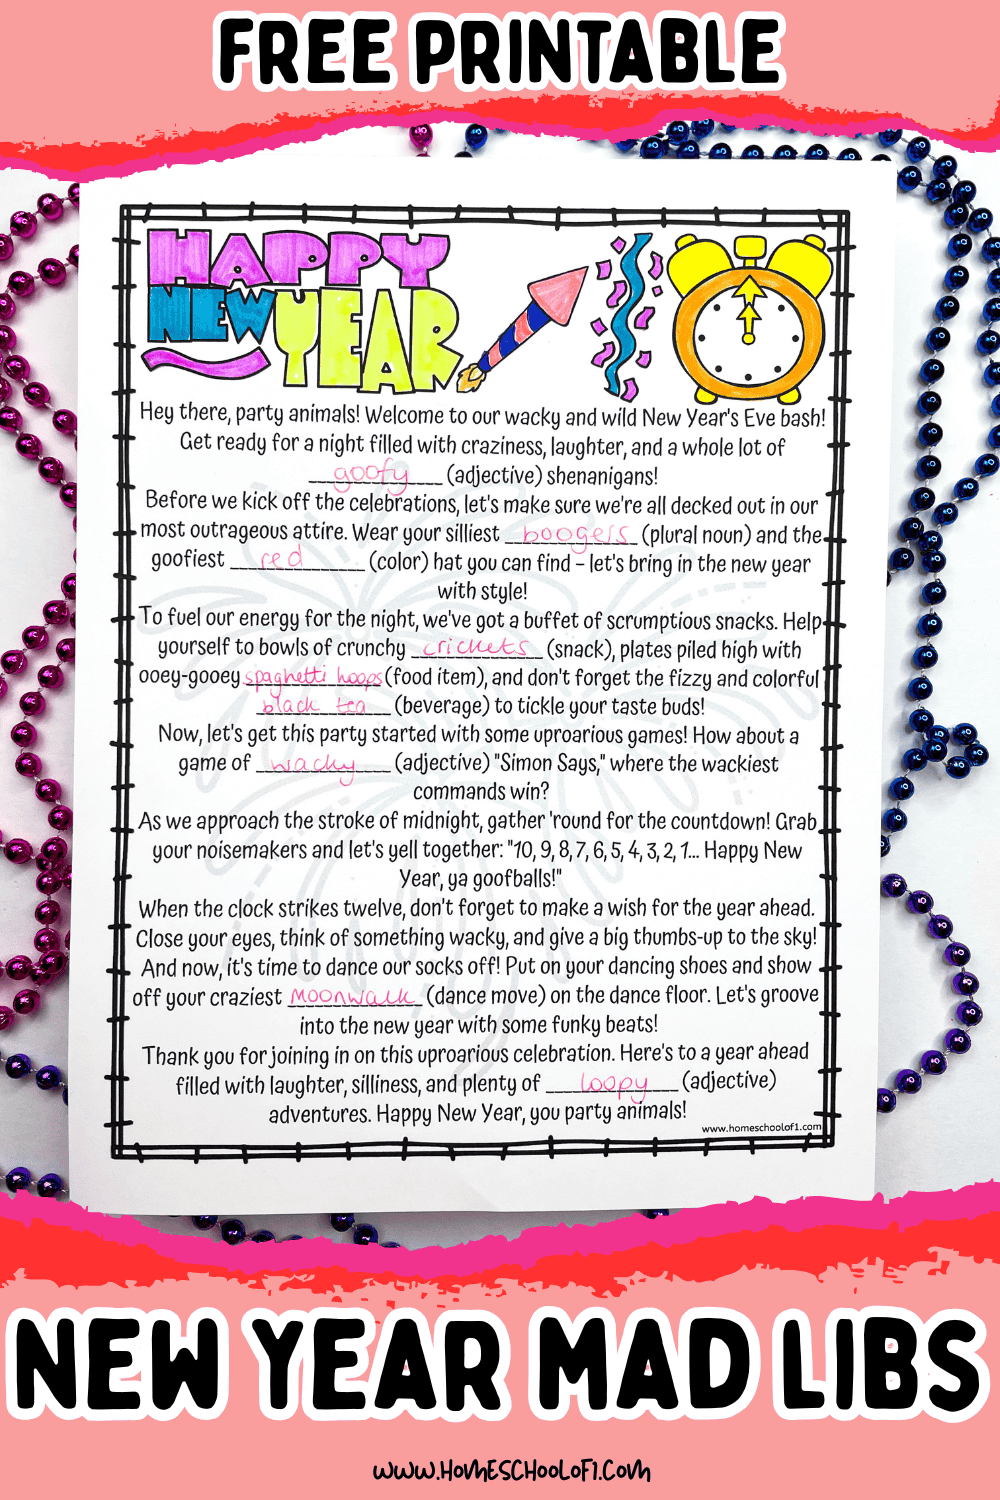 FREE PRINTABLE
HAPPY
NEW YEAR
Hey there, party animals! Welcome to our wacky and wild New Year's Eve bash!
Get ready for a night filled with craziness, laughter, and a whole lot of
goofy (adjective) shenanigans!
Before we kick off the celebrations, let's make sure we're all decked out in our
most outrageous attire. Wear your silliest boogers (plural noun) and the
goofiest red (color) hat you can find – let's bring in the new year
with style!
To fuel our energy for the night, we've got a buffet of scrumptious snacks. Help
yourself to bowls of crunchy crickets (snack), plates piled high with
ooey-gooey spaghetti hoops (food item), and don't forget the fizzy and colorful
black tea (beverage) to tickle your taste buds!
Now, let's get this party started with some uproarious games! How about a
game of wacky (adjective) "Simon Says," where the wackiest
commands win?
As we approach the stroke of midnight, gather 'round for the countdown! Grab
your noisemakers and let's yell together: "10, 9, 8, 7, 6, 5, 4, 3, 2, 1... Happy New
Year, ya goofballs!"
When the clock strikes twelve, don't forget to make a wish for the year ahead.
Close your eyes, think of something wacky, and give a big thumbs-up to the sky!
And now, it's time to dance our socks off! Put on your dancing shoes and show
off your craziest moonwalk (dance move) on the dance floor. Let's groove
into the new year with some funky beats!
Thank you for joining in on this uproarious celebration. Here's to a year ahead
filled with laughter, silliness, and plenty of loopy (adjective)
adventures. Happy New Year, you party animals!
www.homeschoolof1.com
NEW YEAR MAD LIBS
WWW.HOMESCHOOLOF1.COM